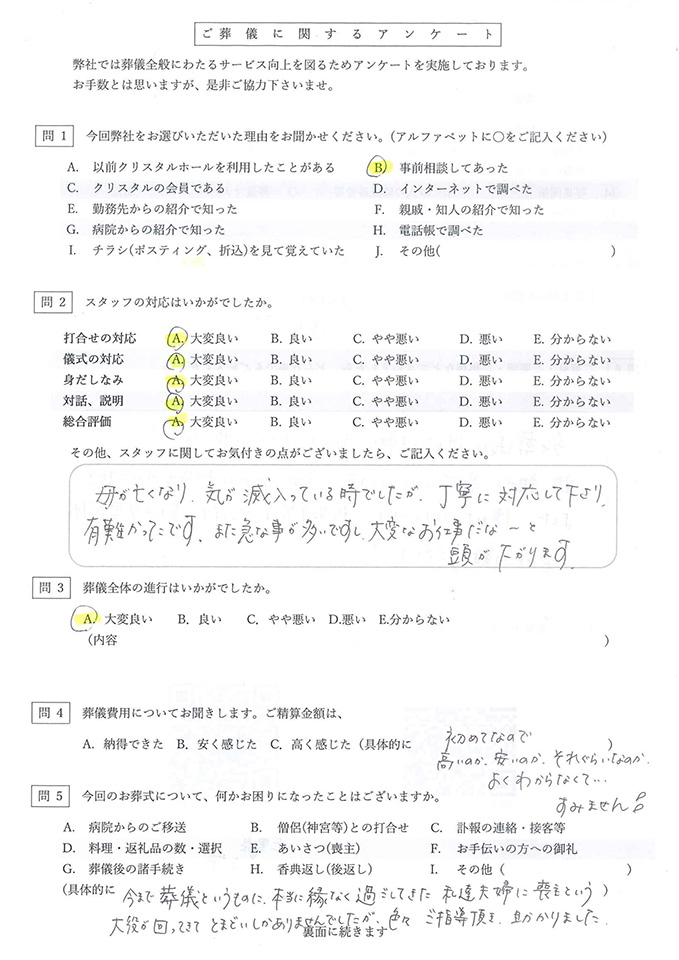 ご葬儀に関するアンケート
弊社では葬儀全般にわたるサービス向上を図るためアンケートを実施しております。
お手数とは思いますが、是非ご協力下さいませ。
問 1 今回弊社をお選びいただいた理由をお聞かせください。(アルファベットに○をご記入ください)
A. 以前クリスタルホールを利用したことがある B. 事前相談してあった
C. クリスタルの会員である D. インターネットで調べた
E. 勤務先からの紹介で知った F. 親戚・知人の紹介で知った
G. 病院からの紹介で知った H. 電話帳で調べた
I. チラシ(ポスティング、折込)を見て覚えていた J. その他( )
問 2 スタッフの対応はいかがでしたか。
打合せの対応 A. 大変良い B. 良い C. やや悪い D. 悪い E. 分からない
儀式の対応 A. 大変良い B. 良い C. やや悪い D. 悪い E. 分からない
身だしなみ A. 大変良い B. 良い C. やや悪い D. 悪い E. 分からない
対話、説明 A. 大変良い B. 良い C. やや悪い D. 悪い E. 分からない
総合評価 A. 大変良い B. 良い C. やや悪い D. 悪い E. 分からない
その他、スタッフに関してお気付きの点がございましたら、ご記入ください。
母が亡くなり、気が滅入っている時でしたが、丁寧に対応して下さり、
有難かったです、また急な事が多いですし、大変なお仕事だな〜と
頭が下がります。
問 3 葬儀全体の進行はいかがでしたか。
A. 大変良い B. 良い C. やや悪い D.悪い E.分からない
(内容 )
問 4 葬儀費用についてお聞きします。ご精算金額は、
A. 納得できた B. 安く感じた C. 高く感じた (具体的に 初めてなので )
高いのか、安いのか、それぐらいなのか、
よくわからなくて…
すみません
問 5 今回のお葬式について、何かお困りになったことはございますか。
A. 病院からのご移送 B. 僧侶(神宮等)との打合せ C. 訃報の連絡・接客等
D. 料理・返礼品の数・選択 E. あいさつ(喪主) F. お手伝いの方への御礼
G. 葬儀後の諸手続き H. 香典返し(後返し) I. その他 ( )
(具体的に 今まで葬儀というものに、本当に縁なく過ごしてきた 私達夫婦に喪主という )
大役が回ってきて とまどいしかありませんでしたが、色々 ご指導頂き、助かりました。
裏面に続きます